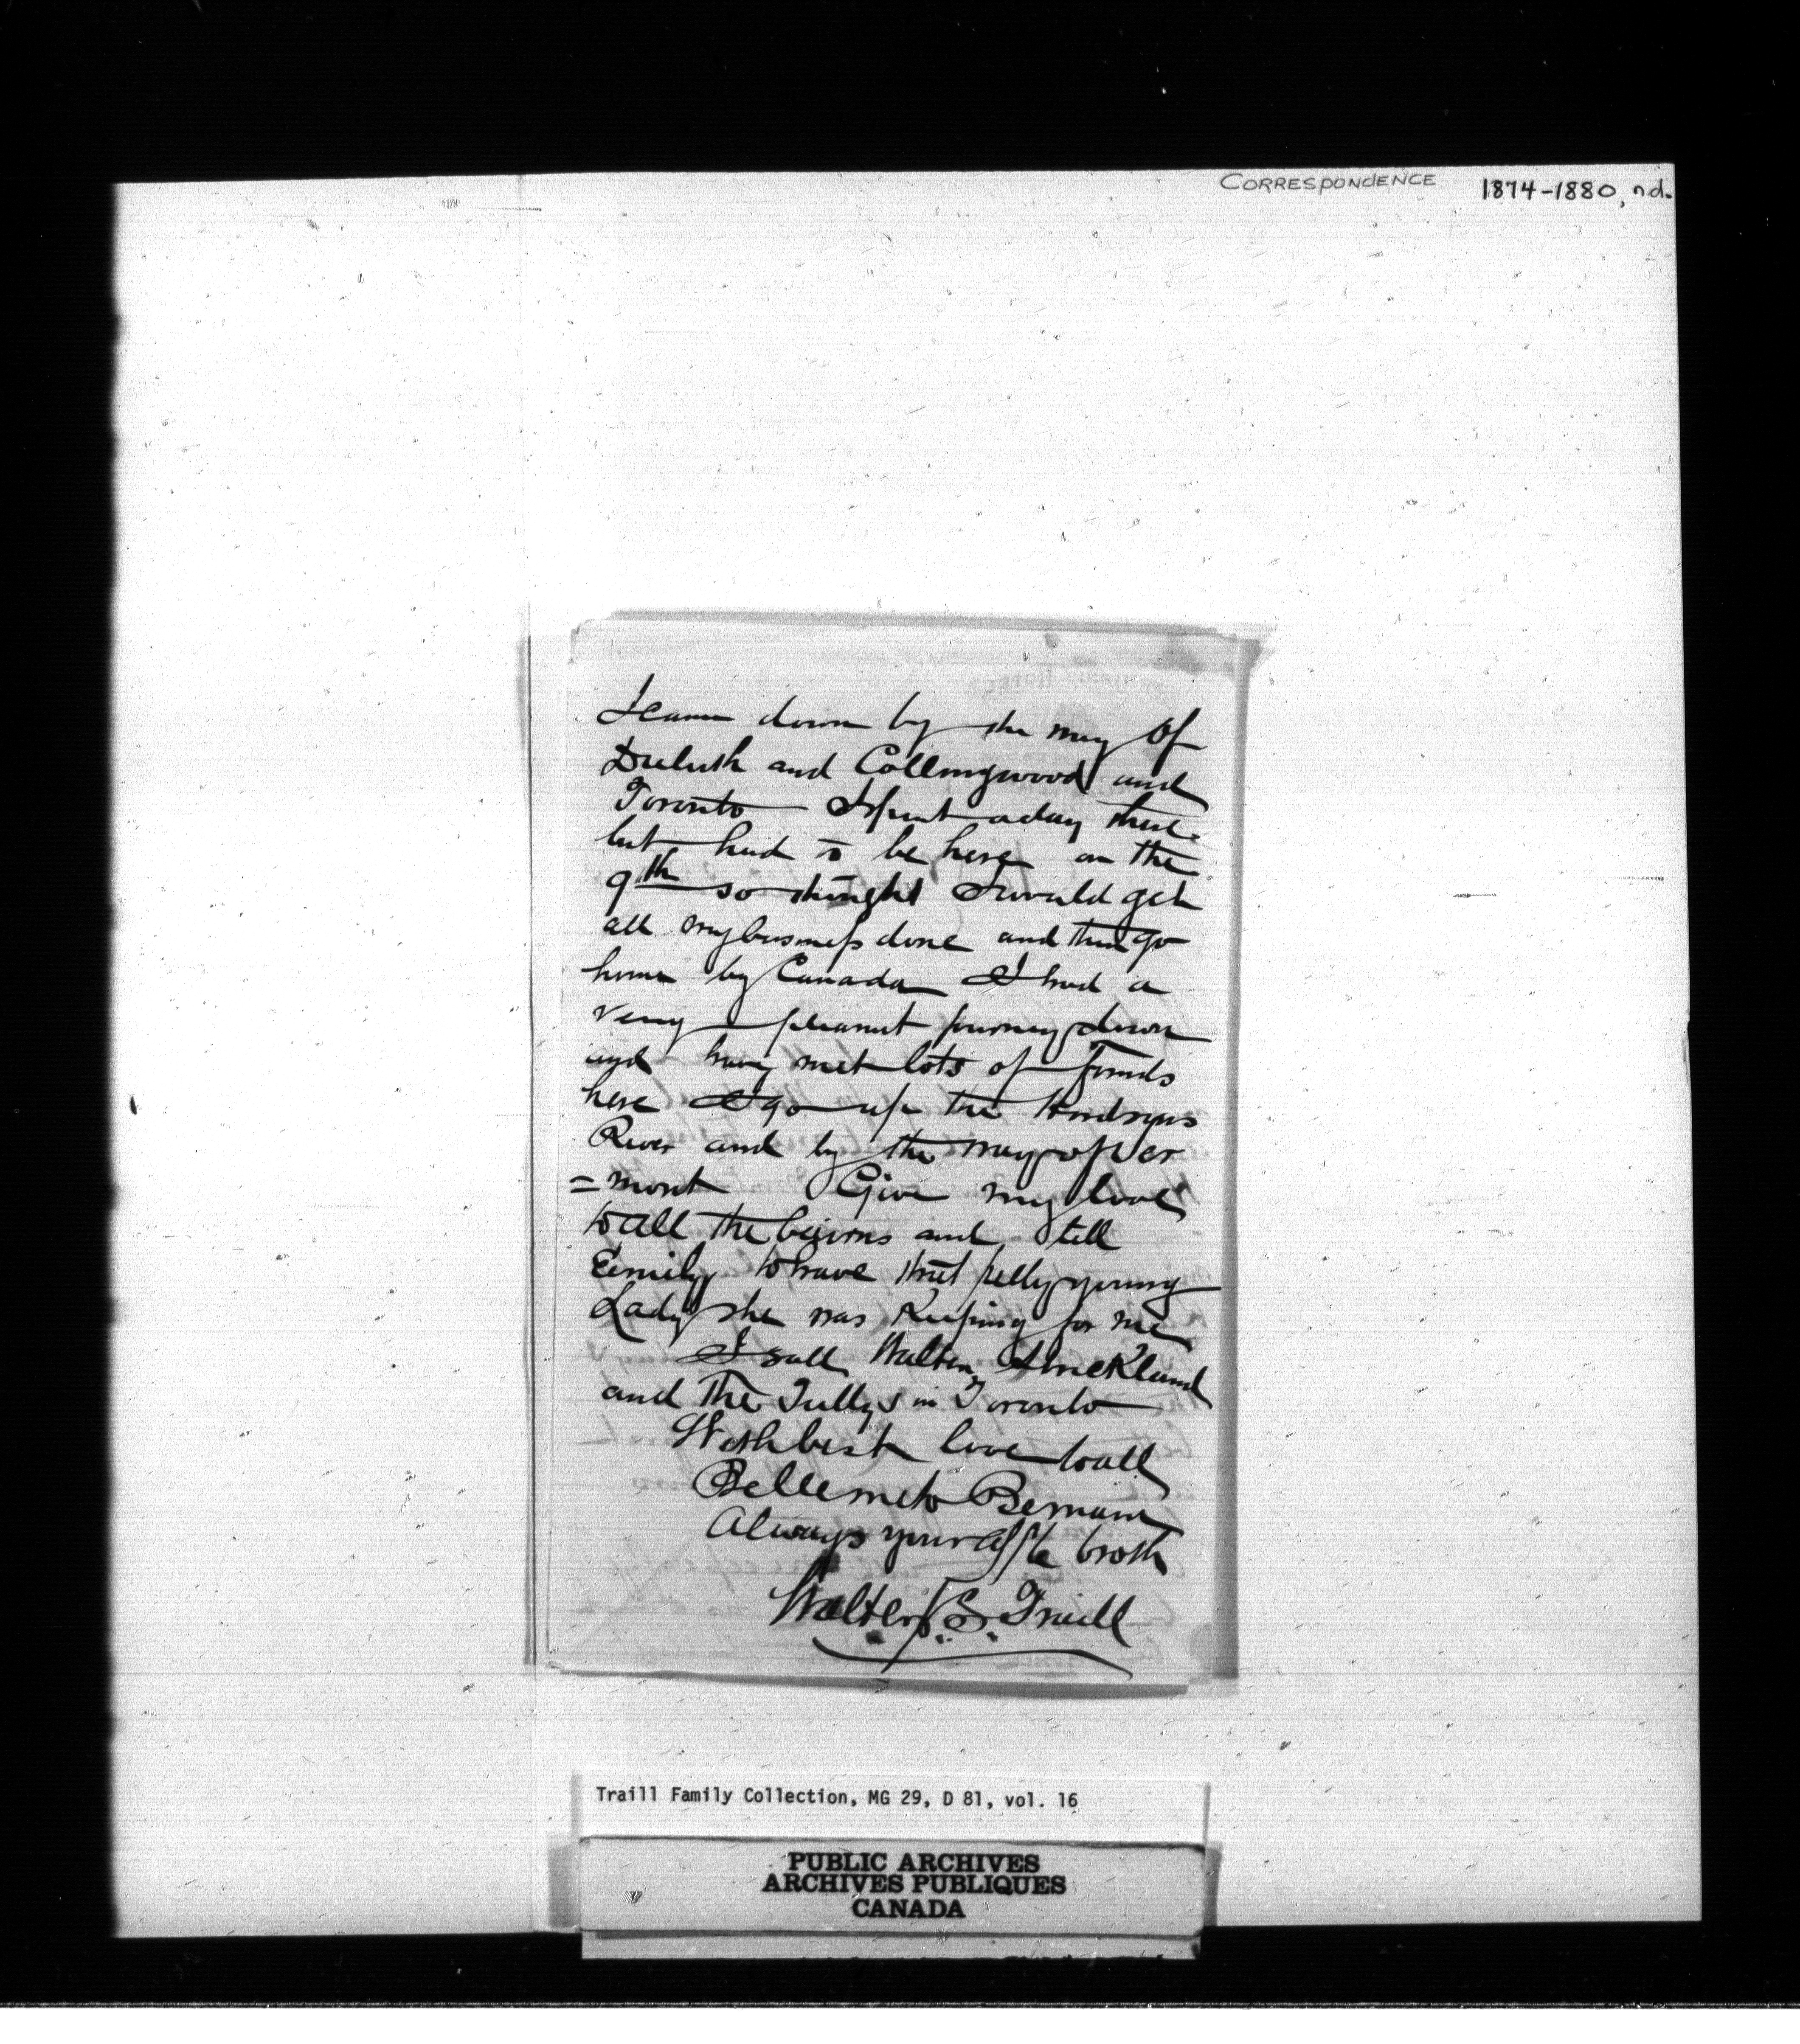 CORRESPONDENCE 1874-1880, n.d.
I came down by the way of
Duluth and Collingwood and
Toronto I spent a day there
but had to be here on the
9th so thought I would get
all my business done and then go
home by Canada I had a
very pleasant journey down
and have met lots of friends
here I go up the Hudsons
River and by the way of Ver
=mont Give my love
to all the bairns and tell
Emily to have that young
Lady she was Keeping for me
I saw Walter Strickland
and The Tullys in Toronto
With best love to all
Believe me to Remain
Always your affte broth
Walter J. S. Traill
Traill Family Collection, MG 29, D 81, vol. 16
PUBLIC ARCHIVES
ARCHIVES PUBLIQUES
CANADA